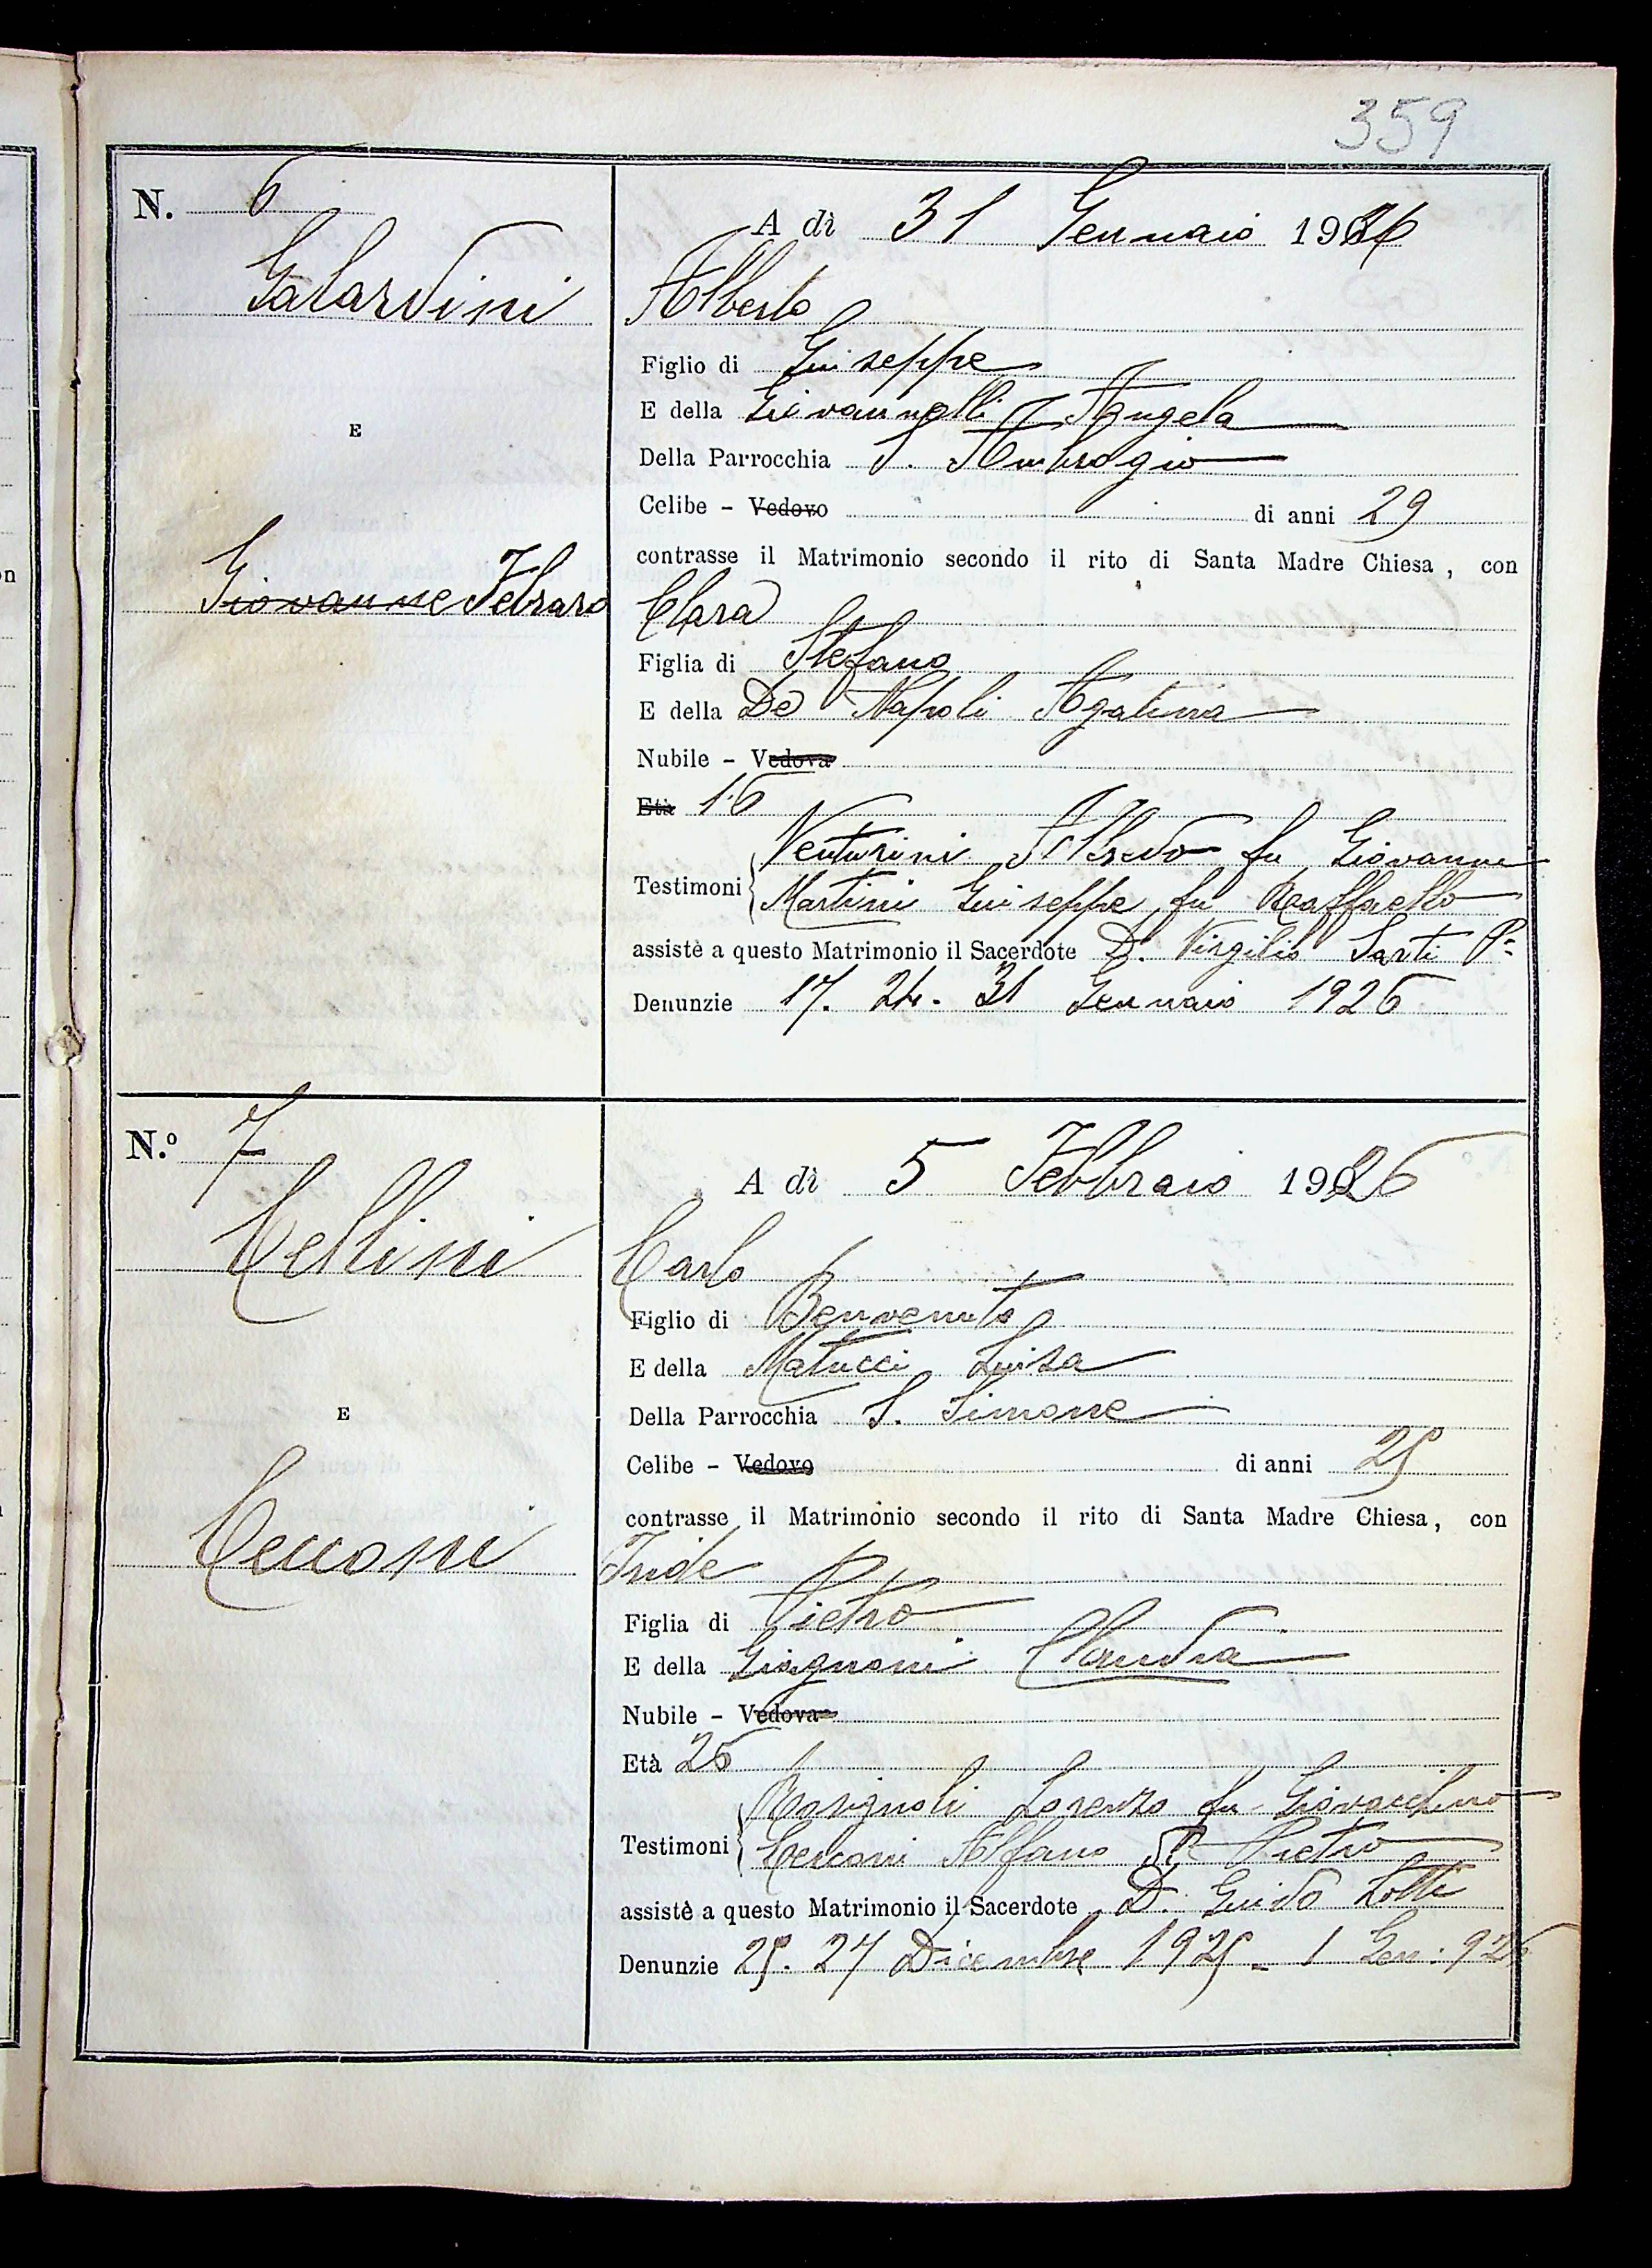 359
N. 6
A dì 31 Gennaio 1926
Galardini
Alberto
Figlio di Giuseppe
E della Giovannelli Angela
E
Della Parrocchia S. Ambrogio
Celibe - Vedovo di anni 29
contrasse il Matrimonio secondo il rito di Santa Madre Chiesa, con
Giovanne Febraro
Clara
Figlia di Stefano
E della De Napoli Agatina
Nubile - Vedova
Età 16
Venturini Alfredo fu Giovanni
Testimoni Martini Giuseppe fu Raffaello
assistè a questo Matrimonio il Sacerdote D. Virgilio Sarti P.
Denunzie 17. 24. 31 Gennaio 1926
N.º 7
A dì 5 Febbraio 1926
Cellini
Carlo
Figlio di Benvenuto
E della Matucci Luisa
E
Della Parrocchia S. Simone
Celibe - Vedovo di anni 25
contrasse il Matrimonio secondo il rito di Santa Madre Chiesa, con
Cecconi
Iride
Figlia di Pietro
E della Giagnoni Claudia
Nubile - Vedova
Età 26
Lorenzo fu Giovacchino
Testimoni Cecconi Alfano Pietro
assistè a questo Matrimonio il Sacerdote D. Guido Lotti
Denunzie 25. 27 Dicembre 1925 - 1 Gen: 926